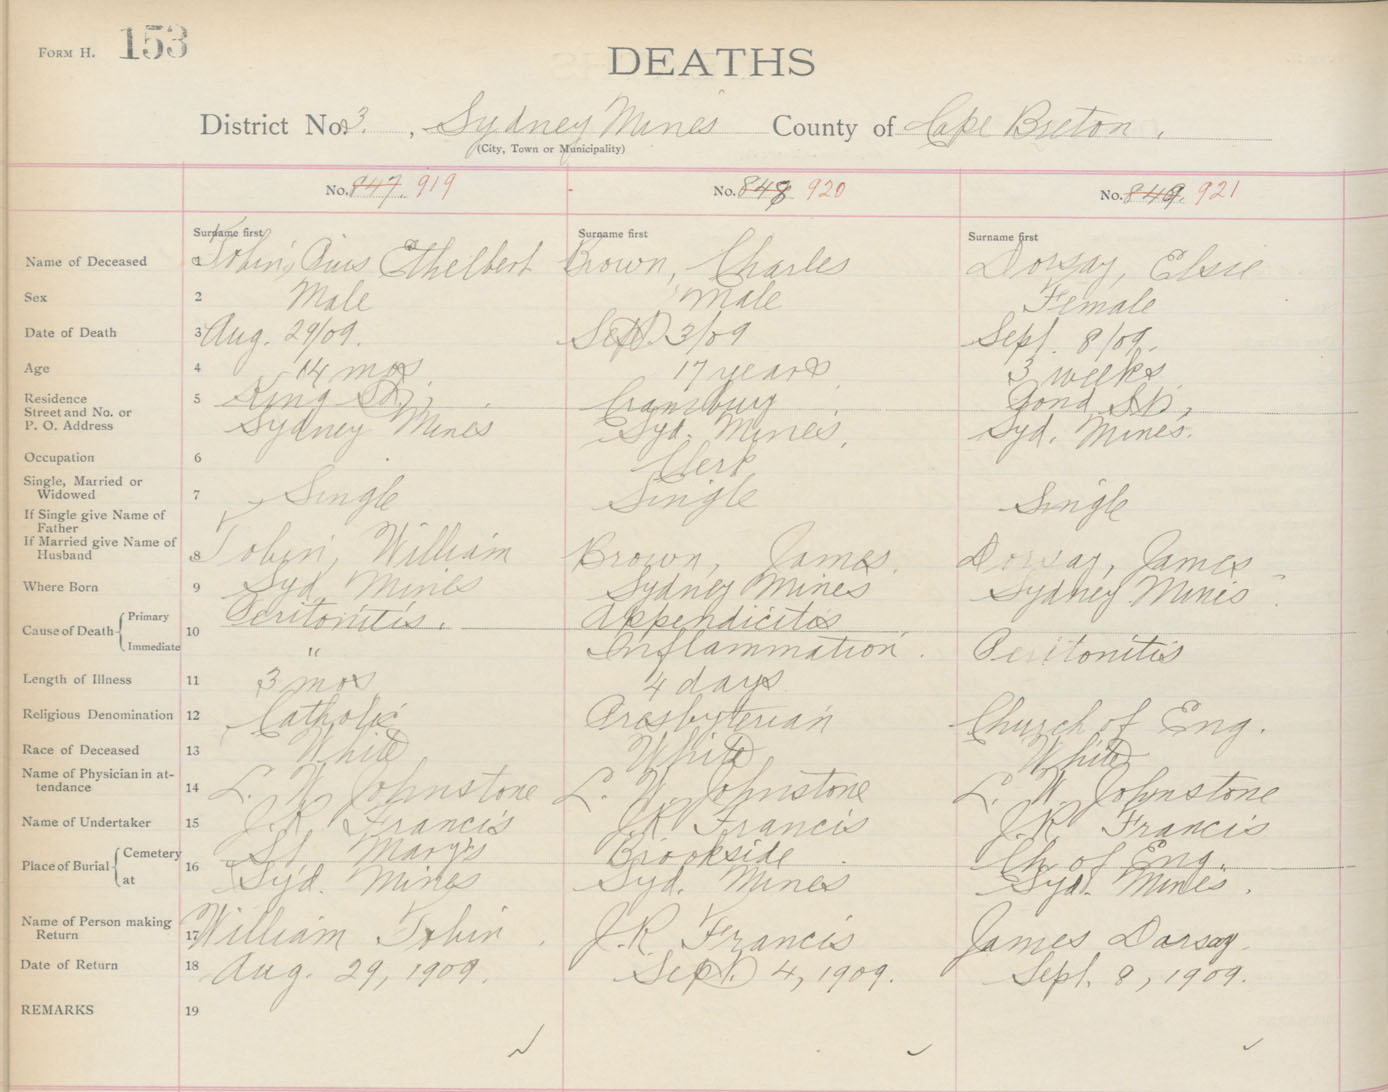 FORM H. 153
DEATHS
District No. 3. , Sydney Mines County of Cape Breton.
(City, Town or Municipality)
No. 847. 919 No. 848 920 No. 849. 921
Surname first Surname first Surname first
Name of Deceased 1 Tobin, Pius Ethelbert Brown, Charles Dorsay, Elsie
Sex 2 Male Male Female
Date of Death 3 Aug. 29/09. Sept. 3/09 Sept. 8/09.
Age 4 14 mos 17 years 3 weeks
Residence 5 King St., Cranbury Pond St.,
Street and No. or
P. O. Address Sydney Mines Syd. Mines. Syd. Mines.
Occupation 6 Clerk
Single, Married or
Widowed 7 Single Single Single
If Single give Name of
Father
If Married give Name of
Husband 8 Tobin, William Brown, James. Dorsay, James
Where Born 9 Syd. Mines Sydney Mines Sydney Mines
Cause of Death 10 Primary Peritonitis. Appendicitis
Immediate " Inflammation. Peritonitis
Length of Illness 11 3 mos 4 days
Religious Denomination 12 Catholic Presbyterian Church of Eng.
Race of Deceased 13 White White White
Name of Physician in at-
tendance 14 L. W. Johnstone L. W. Johnstone L. W. Johnstone
Name of Undertaker 15 J.R. Francis J.R. Francis J.R. Francis
Place of Burial 16 Cemetery St. Mary's Brookside Ch. of Eng.
at Syd. Mines Syd. Mines Syd. Mines.
Name of Person making
Return 17 William Tobin. J.R. Francis James Dorsay.
Date of Return 18 Aug. 29, 1909. Sept. 4, 1909. Sept. 8, 1909.
REMARKS 19